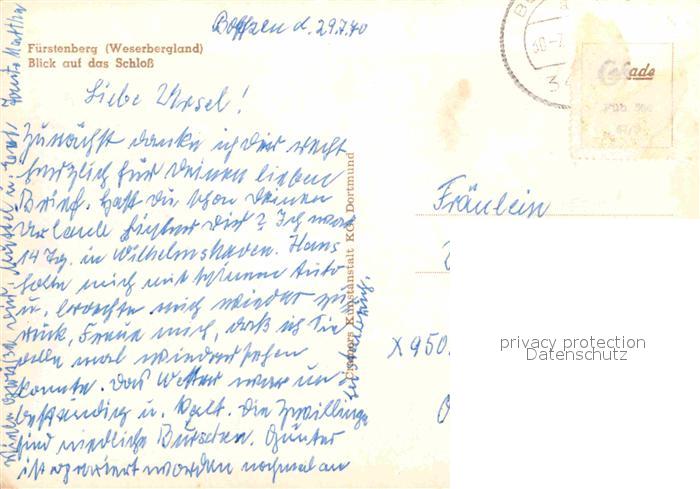 Boffzen d. 29.7.70
Fürstenberg (Weserbergland)
Blick auf das Schloß
Liebe Ursel!
Zunächst danke ich dir recht
herzlich für Deinen lieben
Brief. Hast du schon deinen
Urlaub hinter dir? Ich war
14 Tg. in Wilhelmshaven. Hans
holte mich mit seinem Auto
u. brachte mich wieder zu
rück. Freue mich, daß ich Sie
alle mal wiedersehen
konnte. Das Wetter war un
beständig u. kalt. Die Zwillinge
sind niedliche Burschen. Günter
ist operiert worden nochmal am
Cramers Kunstanstalt KG, Dortmund
Fräulein
X 950
Cekade
privacy protection
Datenschutz